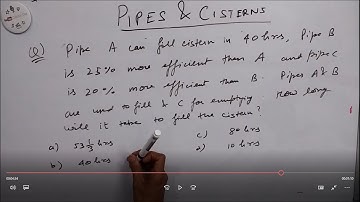 PIPES & CISTERNS
Q) Pipe A can fill cistern in 40 hrs, Pipe B
is 25% more efficient than A and pipe C
is 20% more efficient than B. Pipes A & B
are used to fill & C for emptying how long
will it take to fill the cistern?
a) 53 1/3 hrs c) 80 hrs
b) 40 hrs d) 10 hrs